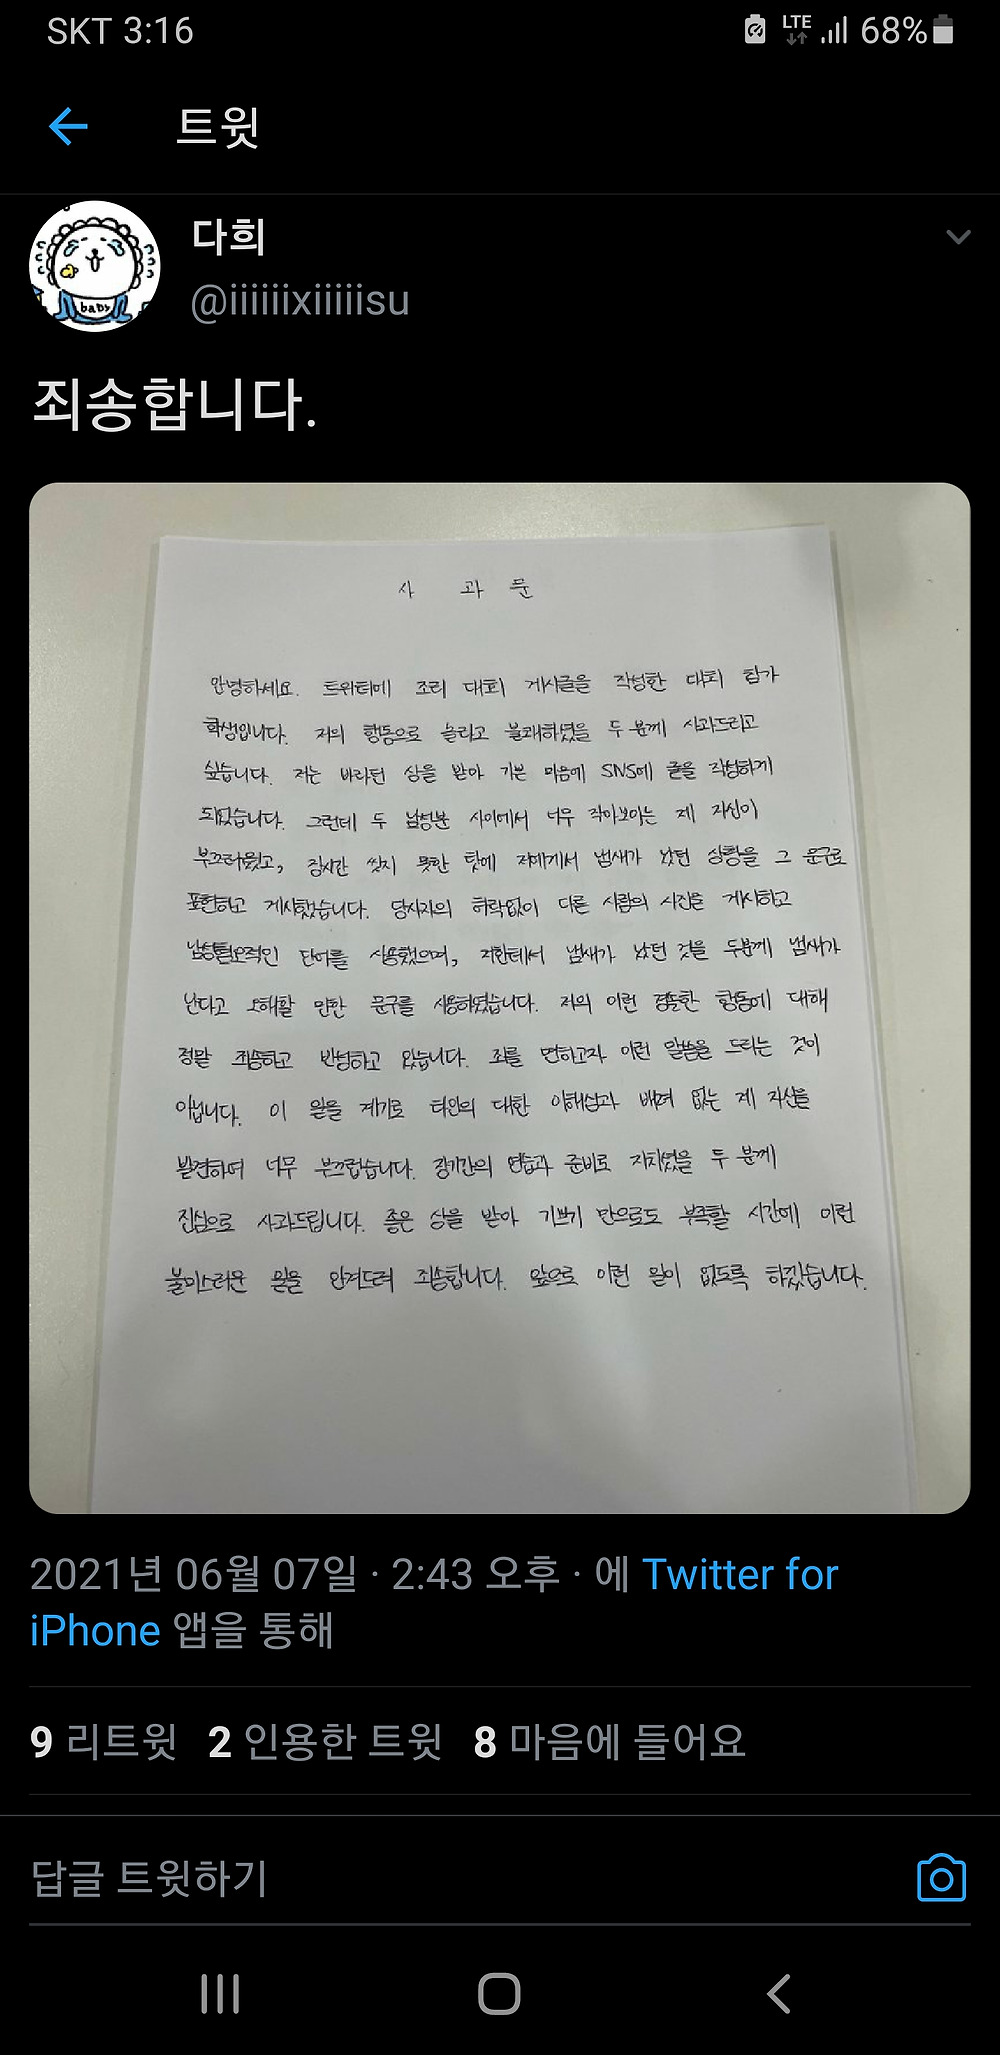 SKT 3:16
LTE
68%
트윗
다희
@iiiiiixiiiiisu
baby
죄송합니다.
사 과 문
안녕하세요. 트위터에 조리 대회 게시글을 작성한 대회 참가
학생입니다. 저의 행동으로 놀라고 불쾌하셨을 두 분께 사과드리고
싶습니다. 저는 바라던 상을 받아 기쁜 마음에 SNS에 글을 작성하게
되었습니다. 그런데 두 남성분 사이에서 너무 작아보이는 제 자신이
부끄러웠고, 장시간 씻지 못한 탓에 저에게서 냄새가 났던 상황을 그 문구로
표현하고 게시했습니다. 당사자의 허락없이 다른 사람의 사진을 게시하고
남성혐오적인 단어를 사용했으며, 저한테서 냄새가 났던 것을 두분께 냄새가
난다고 오해할 만한 문구를 사용하였습니다. 저의 이런 경솔한 행동에 대해
정말 죄송하고 반성하고 있습니다. 죄를 면하고자 이런 말씀을 드리는 것이
아닙니다. 이 일을 계기로 타인의 대한 이해심과 배려 없는 제 자신을
발견하여 너무 부끄럽습니다. 장기간의 연습과 준비로 지치셨을 두 분께
진심으로 사과드립니다. 좋은 상을 받아 기쁘기 만으로도 부족할 시간에 이런
불미스러운 일을 안겨드려 죄송합니다. 앞으로 이런 일이 없도록 하겠습니다.
2021년 06월 07일 · 2:43 오후 · 에 Twitter for
iPhone 앱을 통해
9 리트윗 2 인용한 트윗 8 마음에 들어요
답글 트윗하기